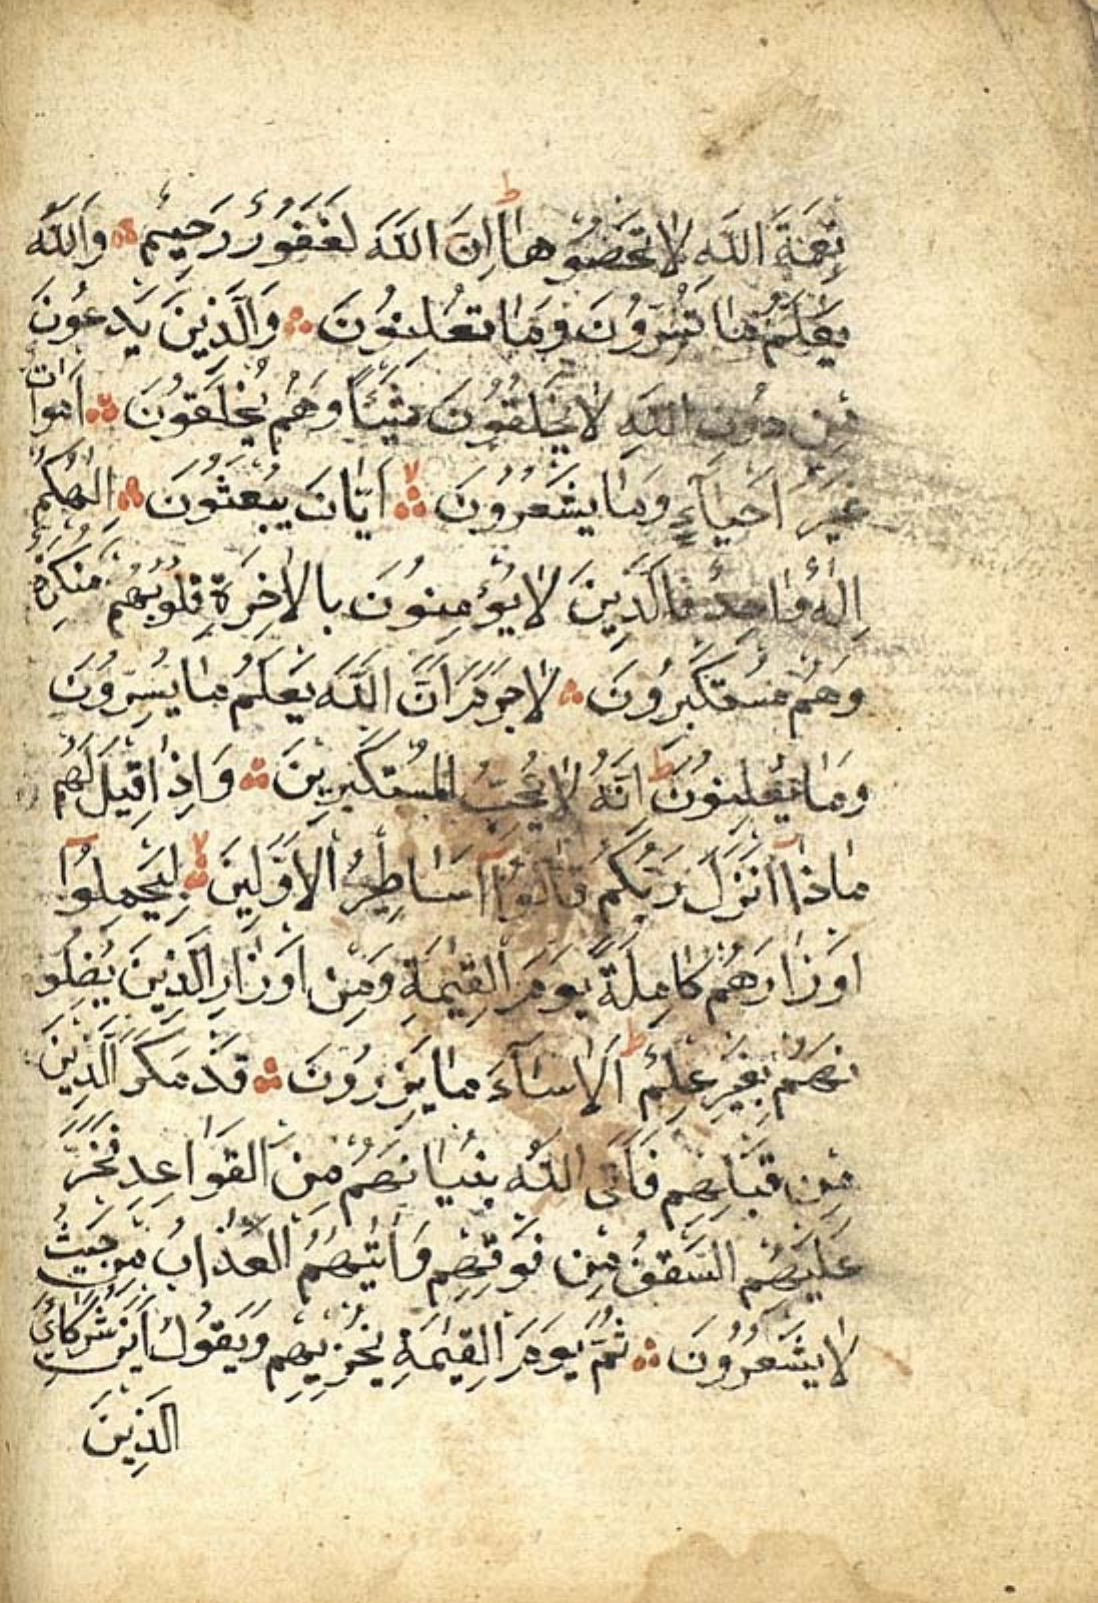 نِعْمَةَ اللّٰهِ لَا تُحْصُوهَا ط اِنَّ اللّٰهَ لَغَفُورٌ رَحِيمٌ وَاللّٰهُ
يَعْلَمُ مَا تُسِرُّونَ وَمَا تُعْلِنُونَ وَالَّذِينَ يَدْعُونَ
مِنْ دُونِ اللّٰهِ لَا يَخْلُقُونَ شَيْئًا وَهُمْ يُخْلَقُونَ اَمْوَاتٌ
غَيْرُ اَحْيَآءٍ وَمَا يَشْعُرُونَ لا اَيَّانَ يُبْعَثُونَ اِلٰهُكُمْ
اِلٰهٌ وَاحِدٌ فَالَّذِينَ لَا يُؤْمِنُونَ بِالْاٰخِرَةِ قُلُوبُهُمْ مُنْكِرَةٌ
وَهُمْ مُسْتَكْبِرُونَ لَا جَرَمَ اَنَّ اللّٰهَ يَعْلَمُ مَا يُسِرُّونَ
وَمَا يُعْلِنُونَ ط اِنَّهُ لَا يُحِبُّ الْمُسْتَكْبِرِينَ وَاِذَا قِيلَ لَهُمْ
مَاذَآ اَنْزَلَ رَبُّكُمْ قَالُوٓا اَسَاطِيرُ الْاَوَّلِينَ لا لِيَحْمِلُوٓا
اَوْزَارَهُمْ كَامِلَةً يَوْمَ الْقِيٰمَةِ وَمِنْ اَوْزَارِ الَّذِينَ يُضِلُّو
نَهُمْ بِغَيْرِ عِلْمٍ ط اَلَا سَآءَ مَا يَزِرُونَ قَدْ مَكَرَ الَّذِينَ
مِنْ قَبْلِهِمْ فَاَتَى اللّٰهُ بُنْيَانَهُمْ مِنَ الْقَوَاعِدِ فَخَرَّ
عَلَيْهِمُ السَّقْفُ مِنْ فَوْقِهِمْ وَاَتٰيهُمُ الْعَذَابُ مِنْ حَيْثُ
لَا يَشْعُرُونَ ثُمَّ يَوْمَ الْقِيٰمَةِ يُخْزِيهِمْ وَيَقُولُ اَيْنَ شُرَكَائِيَ
الَّذِينَ